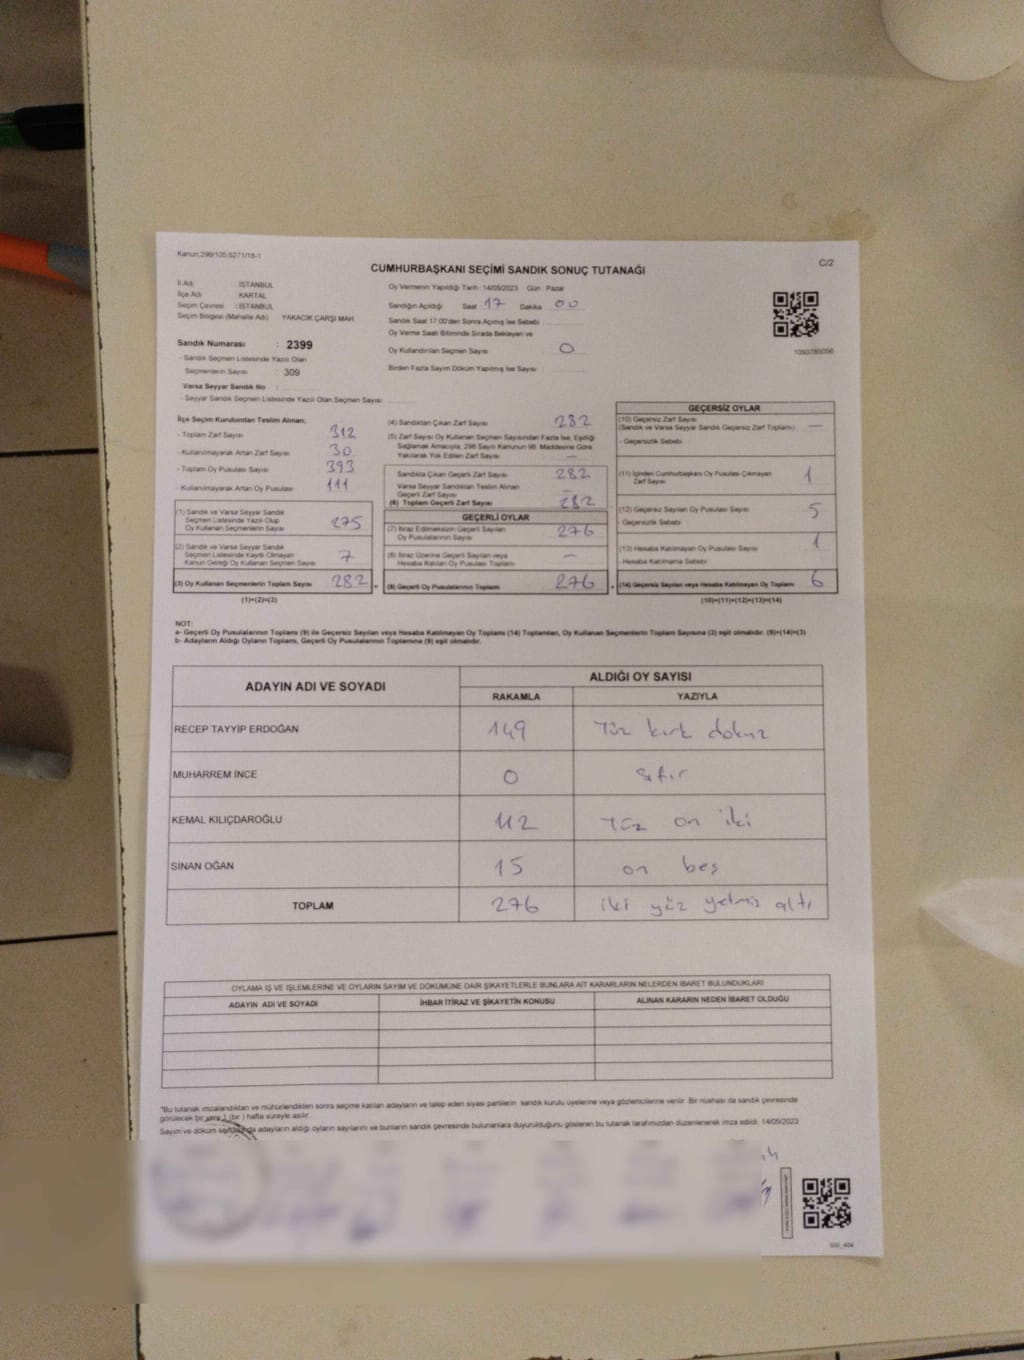 Kanun;298/105,6271/18-1
C/2
CUMHURBAŞKANI SEÇİMİ SANDIK SONUÇ TUTANAĞI
İl Adı : İSTANBUL
İlçe Adı : KARTAL
Seçim Çevresi : İSTANBUL
Seçim Bölgesi (Mahalle Adı) : YAKACIK ÇARŞI MAH.
Sandık Numarası : 2399
- Sandık Seçmen Listesinde Yazılı Olan
Seçmenlerin Sayısı : 309
Varsa Seyyar Sandık No :
- Seyyar Sandık Seçmen Listesinde Yazılı Olan Seçmen Sayısı :
Oy Vermenin Yapıldığı Tarih 14/05/2023 Gün Pazar
Sandığın Açıldığı Saat 17 Dakika 00
Sandık Saat 17:00'den Sonra Açılmış İse Sebebi
Oy Verme Saati Bitiminde Sırada Bekleyen ve
Oy Kullandırılan Seçmen Sayısı 0
Birden Fazla Sayım Döküm Yapılmış İse Sayısı
1093785056
İlçe Seçim Kurulundan Teslim Alınan;
- Toplam Zarf Sayısı 312
- Kullanılmayarak Artan Zarf Sayısı 30
- Toplam Oy Pusulası Sayısı 393
- Kullanılmayarak Artan Oy Pusulası 111
(1) Sandık ve Varsa Seyyar Sandık
Seçmen Listesinde Yazılı Olup
Oy Kullanan Seçmenlerin Sayısı 275
(2) Sandık ve Varsa Seyyar Sandık
Seçmen Listesinde Kayıtlı Olmayan
Kanun Gereği Oy Kullanan Seçmen Sayısı 7
(3) Oy Kullanan Seçmenlerin Toplam Sayısı 282 =
(1)+(2)=(3)
(4) Sandıktan Çıkan Zarf Sayısı 282
(5) Zarf Sayısı Oy Kullanan Seçmen Sayısından Fazla İse, Eşitliği
Sağlamak Amacıyla, 298 Sayılı Kanunun 98. Maddesine Göre
Yakılarak Yok Edilen Zarf Sayısı —
Sandıkta Çıkan Geçerli Zarf Sayısı 282
Varsa Seyyar Sandıktan Teslim Alınan
Geçerli Zarf Sayısı —
(6) Toplam Geçerli Zarf Sayısı 282
GEÇERLİ OYLAR
(7) İtiraz Edilmeksizin Geçerli Sayılan
Oy Pusulalarının Sayısı 276
(8) İtiraz Üzerine Geçerli Sayılan veya
Hesaba Katılan Oy Pusulası Toplamı —
(9) Geçerli Oy Pusulalarının Toplamı 276 +
GEÇERSİZ OYLAR
(10) Geçersiz Zarf Sayısı
(Sandık ve Varsa Seyyar Sandık Geçersiz Zarf Toplamı) —
- Geçersizlik Sebebi
(11) İçinden Cumhurbaşkanı Oy Pusulası Çıkmayan
Zarf Sayısı 1
(12) Geçersiz Sayılan Oy Pusulası Sayısı 5
- Geçersizlik Sebebi
(13) Hesaba Katılmayan Oy Pusulası Sayısı 1
- Hesaba Katılmama Sebebi
(14) Geçersiz Sayılan veya Hesaba Katılmayan Oy Toplamı 6
(10)+(11)+(12)+(13)=(14)
NOT:
a- Geçerli Oy Pusulalarının Toplamı (9) ile Geçersiz Sayılan veya Hesaba Katılmayan Oy Toplamı (14) Toplamları, Oy Kullanan Seçmenlerin Toplam Sayısına (3) eşit olmalıdır. (9)+(14)=(3)
b- Adayların Aldığı Oyların Toplamı, Geçerli Oy Pusulalarının Toplamına (9) eşit olmalıdır.
ADAYIN ADI VE SOYADI ALDIĞI OY SAYISI
RAKAMLA YAZIYLA
RECEP TAYYİP ERDOĞAN 149 Yüz kırk dokuz
MUHARREM İNCE 0 sıfır
KEMAL KILIÇDAROĞLU 112 Yüz on iki
SİNAN OĞAN 15 on beş
TOPLAM 276 iki yüz yetmiş altı
OYLAMA İŞ VE İŞLEMLERİNE VE OYLARIN SAYIM VE DÖKÜMÜNE DAİR ŞİKAYETLERLE BUNLARA AİT KARARLARIN NELERDEN İBARET BULUNDUKLARI
ADAYIN ADI VE SOYADI İHBAR İTİRAZ VE ŞİKAYETİN KONUSU ALINAN KARARIN NEDEN İBARET OLDUĞU
"Bu tutanak imzalandıktan ve mühürlendikten sonra seçime katılan adayların ve talep eden siyasi partilerin sandık kurulu üyelerine veya gözlemcilerine verilir. Bir nüshası da sandık çevresinde
görülecek bir yere 1 (bir) hafta süreyle asılır.
Sayım ve döküm sonunda adayların aldığı oyların sayılarını ve bunların sandık çevresinde bulunanlara duyurulduğunu gösteren bu tutanak tarafımızdan düzenlenerek imza edildi. 14/05/2023